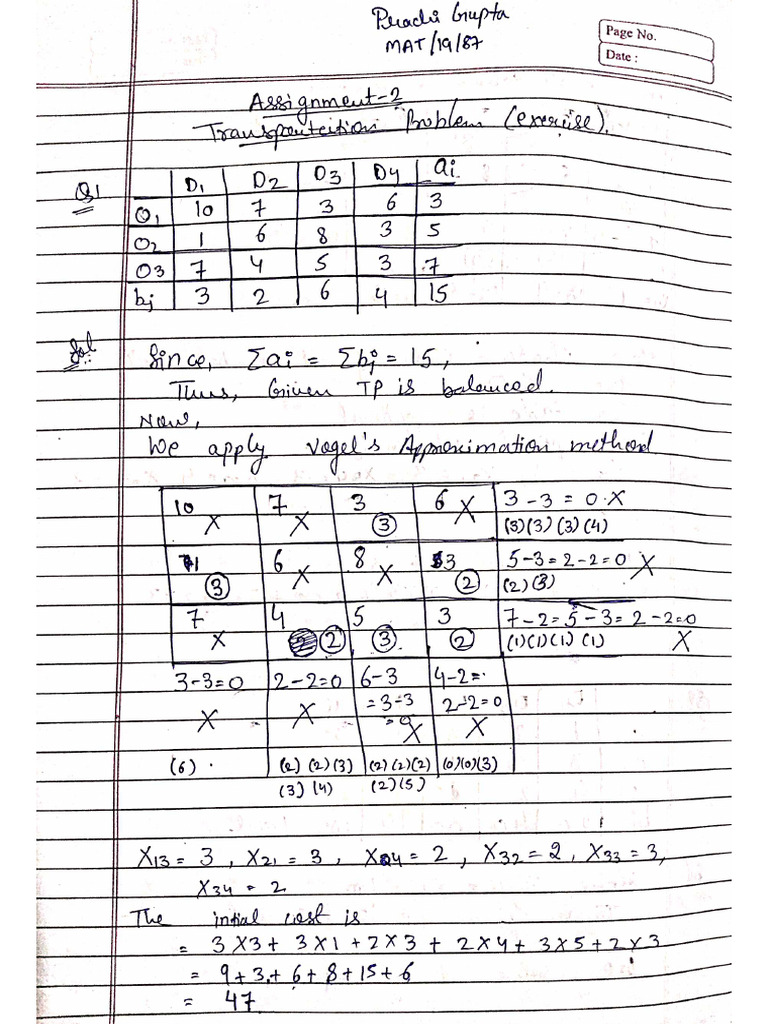 Prachi Gupta
MAT/19/87
Page No.
Date :
Assignment-2
Transportation Problem (exercise).
Q1
D1 D2 D3 D4 ai
O1 10 7 3 6 3
O2 1 6 8 3 5
O3 7 4 5 3 7
bj 3 2 6 4 15
Sol
Since, Σai = Σbj = 15,
Thus, Given TP is balanced.
Now,
We apply Vogel's Approximation method
10 X 7 X 3 (3) 6 X 3-3=0 X
(3)(3)(3)(4)
1 (3) 6 X 8 X 3 (2) 5-3=2-2=0 X
(2)(3)
7 X 4 (2) 5 (3) 3 (2) 7-2=5-3=2-2=0
(1)(1)(1)(1) X
3-3=0 2-2=0 6-3 4-2=
=3-3 2-2=0
=0
X X X X
(6) (2)(2)(3) (2)(2)(2) (0)(0)(3)
(3)(4) (2)(5)
X13 = 3, X21 = 3, X24 = 2, X32 = 2, X33 = 3,
X34 = 2
The intial cost is
= 3X3+ 3X1+2X3+ 2X4+3X5+2X3
= 9+3+6+8+15+6
= 47